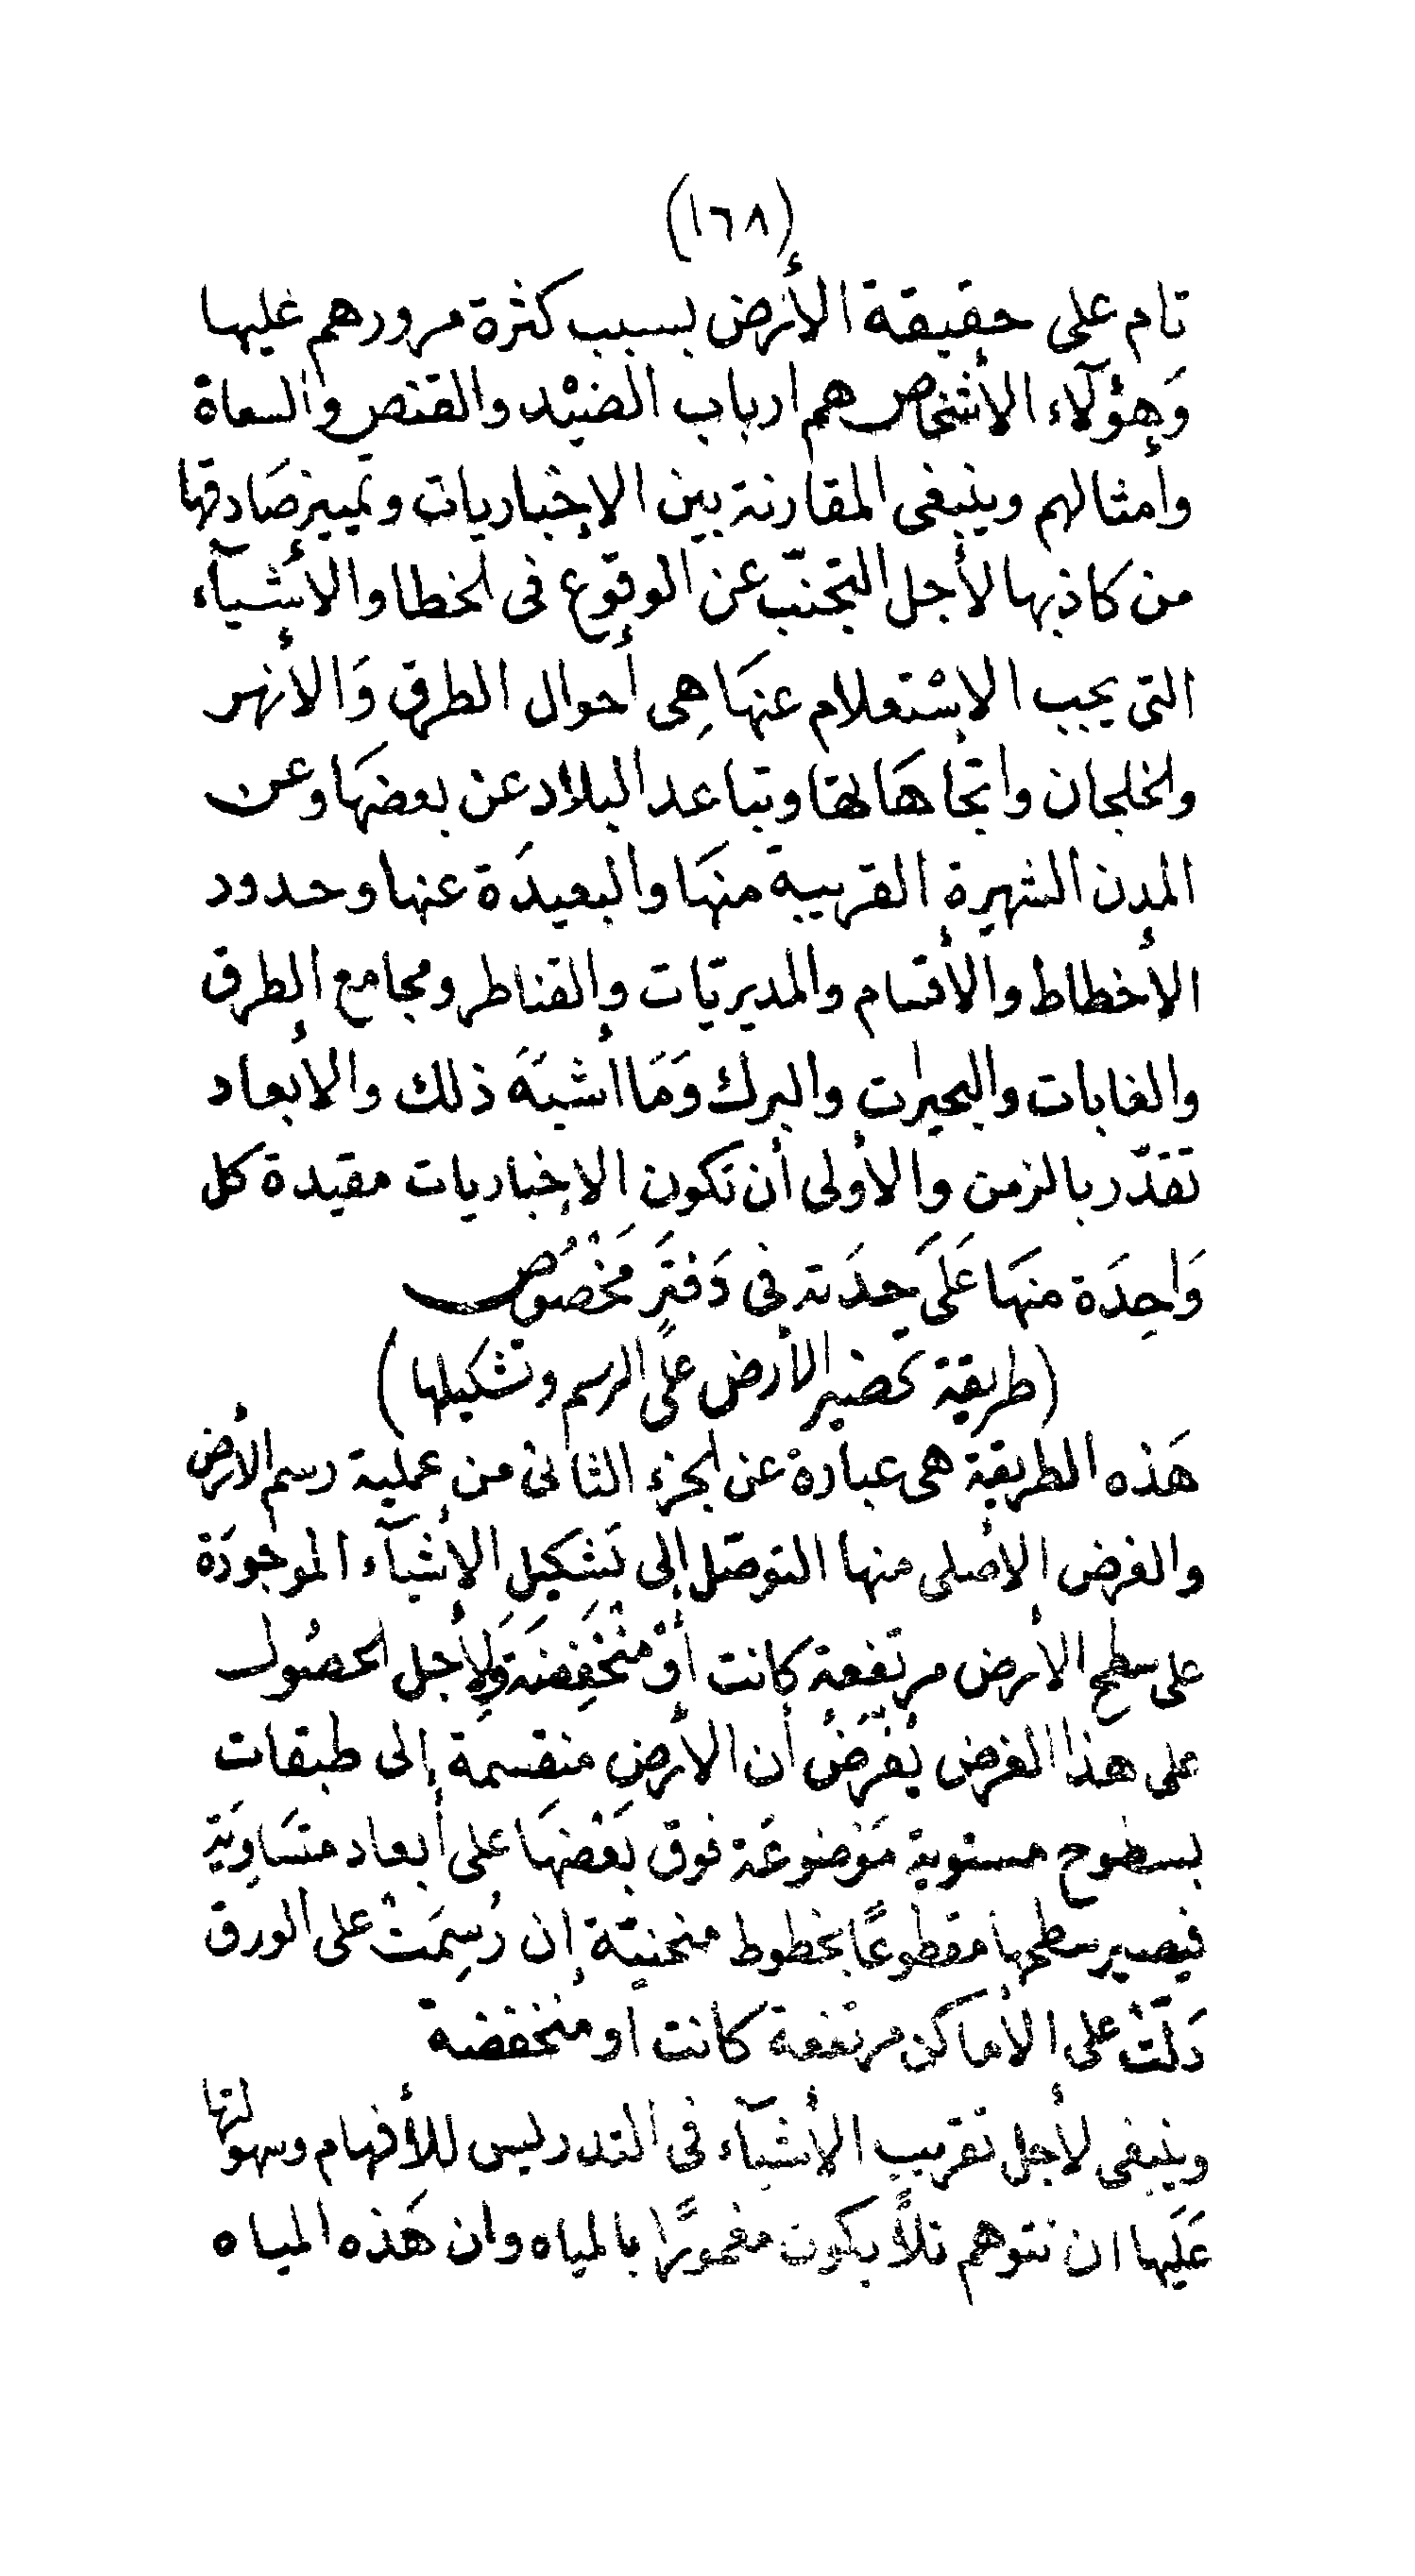 (١٦٨)
تام على حقيقة الأرض بسبب كثرة مرورهم عليها
وَهؤلآء الأشخاص هم ارباب الصيْد والقنص والسعاة
وأمثالهم وينبغى المقارنة بين الإخباريات وتمييز صَادقها
من كاذبها لأجل التجنّب عن الوقوع فى الخطا والأشيآء
التى يجب الاسْتعلام عنهَا هِى أحوال الطرق وَالأنهر
والخلجان واتجاهَاتها وتباعد البلاد عن بعضهَا وعن
المدن الشهيرة القريبة منهَا والبعيدَة عنها وحدود
الأخطاط والأقسام والمديريّات والقناطر ومجامع الطرق
والغابات والبحيرات والبرك وَمَا أشبَهَ ذلك والأبعاد
تقدّر بالزمن والأولى أن تكون الإخباريات مقيدة كل
وَاحِدَة منهَا عَلَى حِدَته فى دَفترٍ مَخْصُوص
(طريقة تحضير الأرض على الرسم وتشكيلها)
هَذه الطريقة هى عبارة عن الجزء الثانى من عملية رسم الأرض
والغرض الأصلى منها التوصّل إلى تَشكيل الأشيآء الموجودَة
على سطح الأرض مرتفعة كانت أوْ مُنْخَفِضَة وَلأجل الحصُول
على هذا الغرض يُفْرَضُ أن الأرض منقسمَة إلى طبقات
بسطوح مستوية مَوْضوعَة فوق بَعْضهَا على أبعاد متسَاوِيَة
فيصير سطحها مقطوعًا بخطوط منحنيّة إن رُسِمَتْ على الورق
دَلّتْ على الأماكن مرتفعة كانت او منخفضة
وينبغى لأجل تقريب الأشيآء فى التدريس للأفهام وسهولتها
عَلَيها ان نتوهم تلاًّ يكون مغمورًا بالمياه وان هَذه المياه